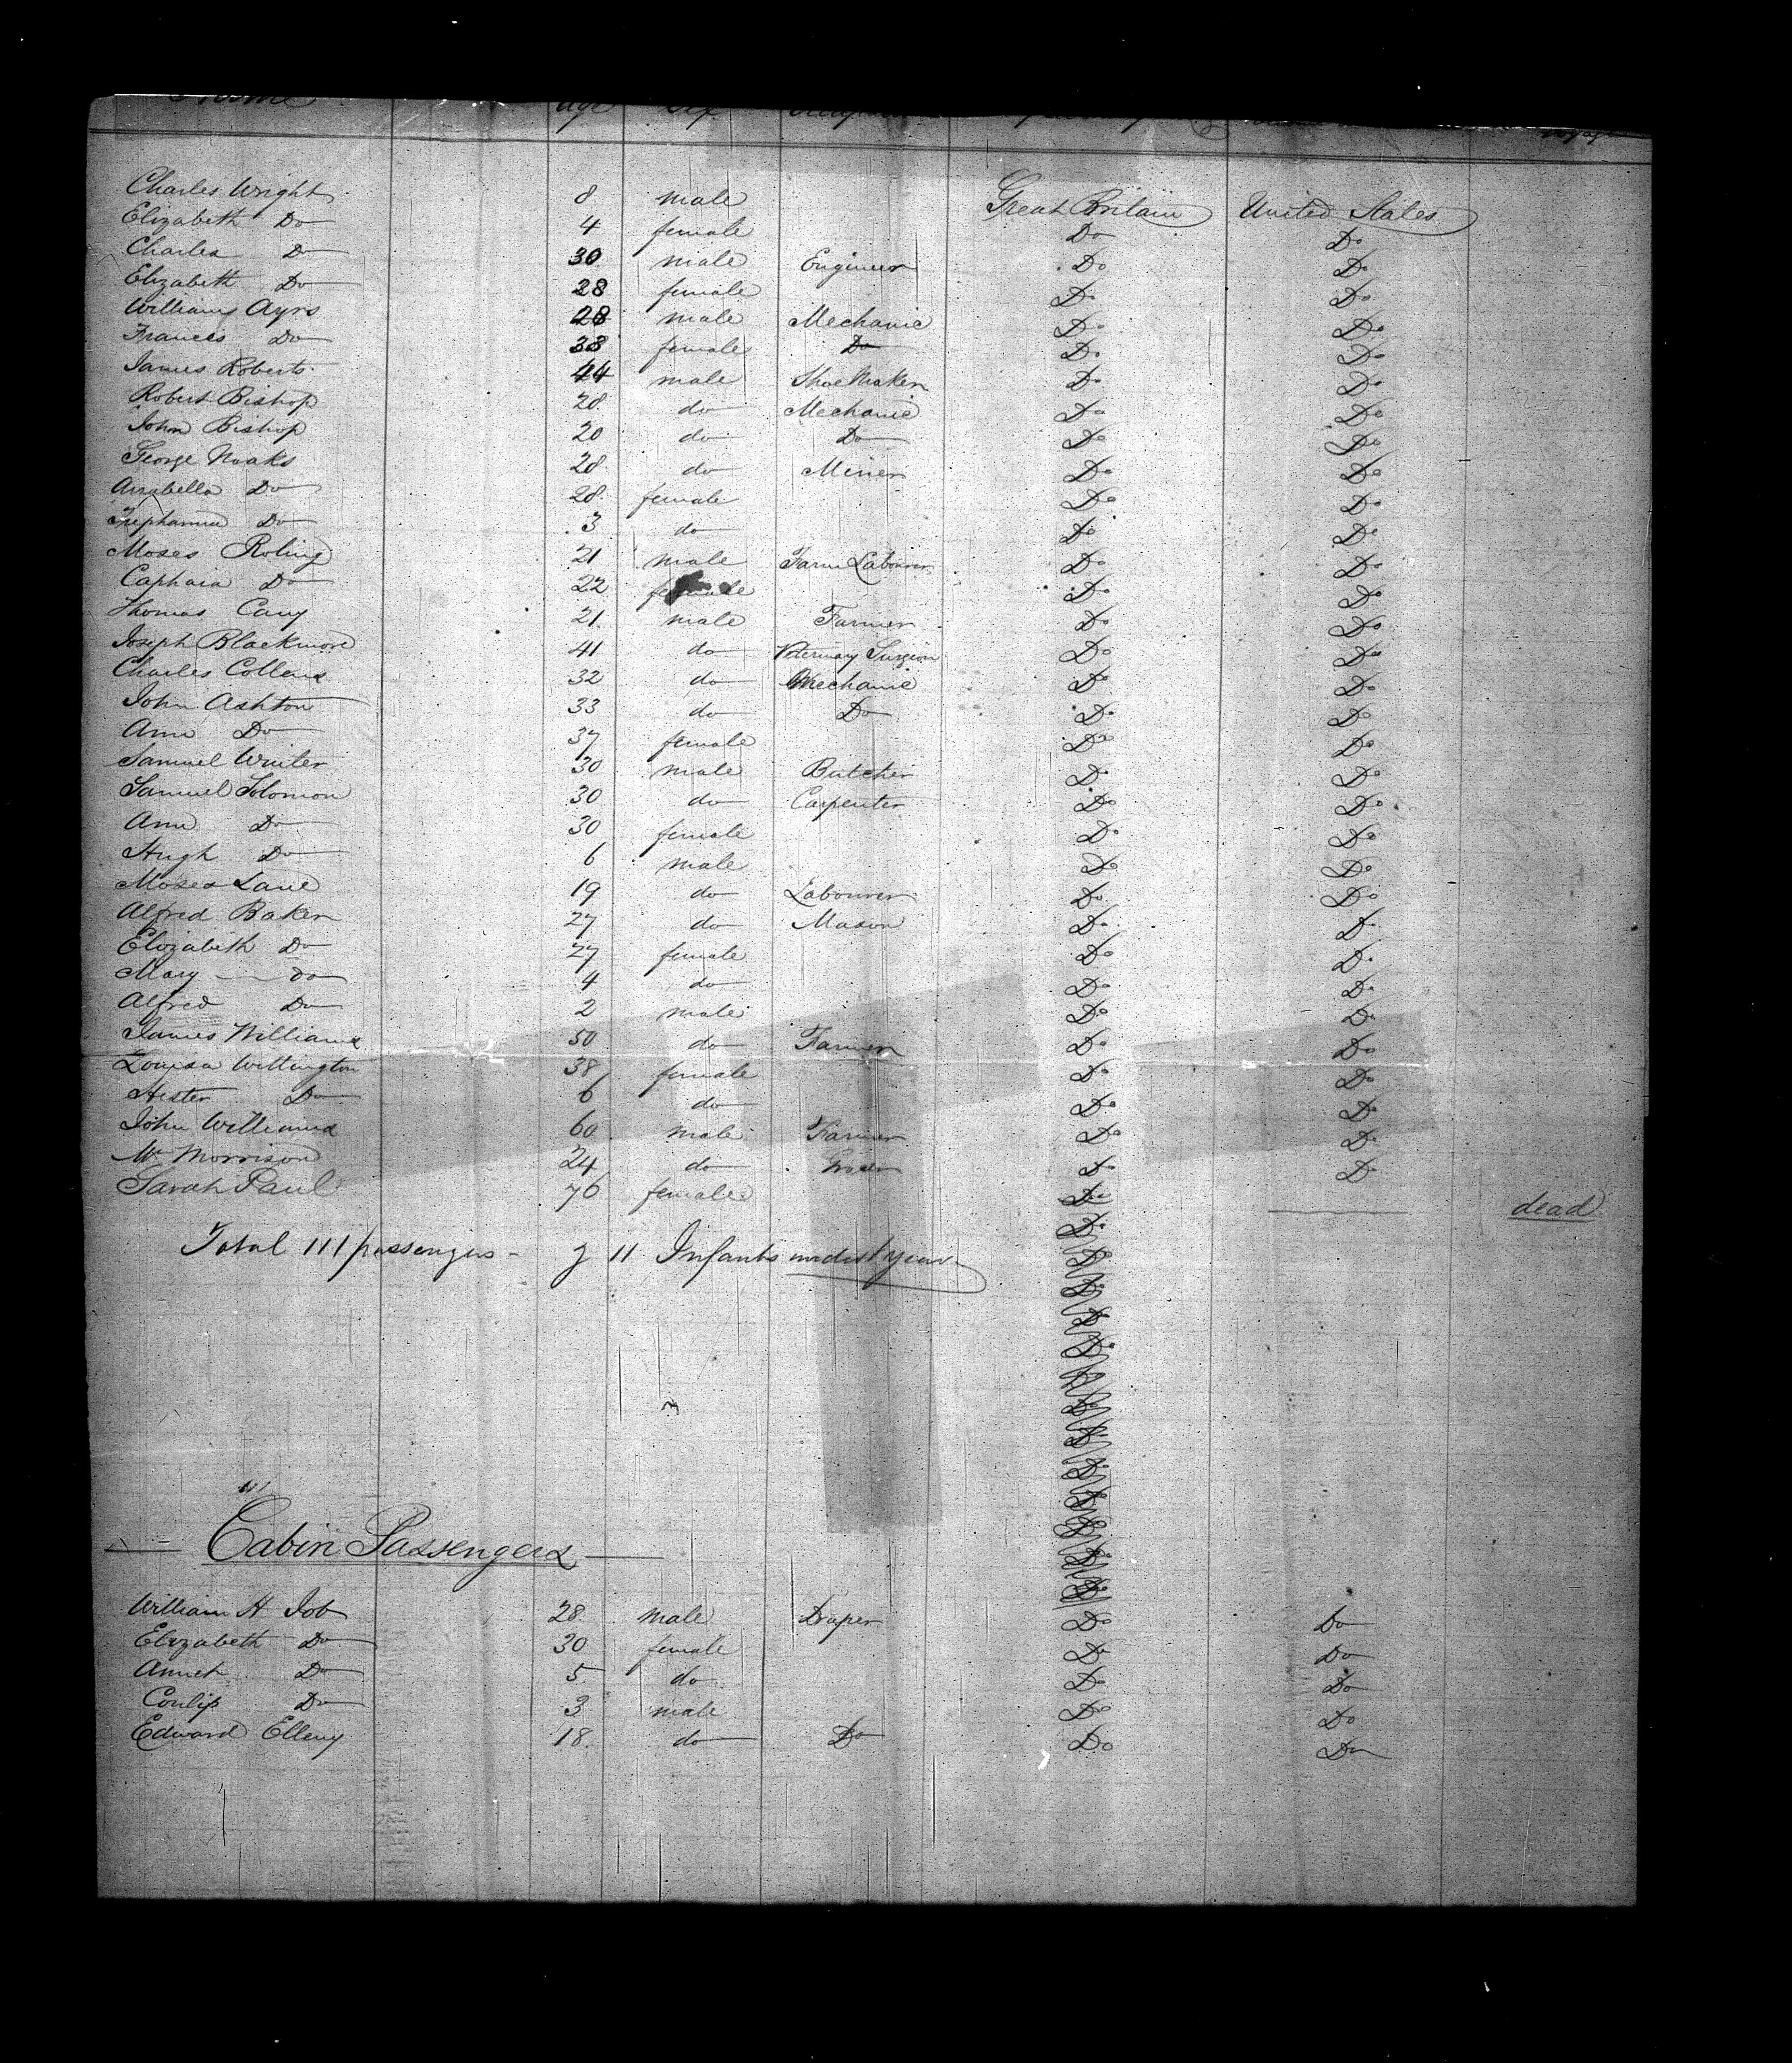 Name Age Sex
Charles Wright 8 male Great Britain United States
Elizabeth Do 4 female Do Do
Charles Do 30 male Engineer Do Do
Elizabeth Do 28 female Do Do
Williams Ayrs 28 male Mechanic Do Do
Frances Do 38 female Do Do Do
James Roberts 44 male Shoe Maker Do Do
Robert Bishop 28 do Mechanic Do Do
John Bishop 20 do Do Do Do
George Noaks 28 do Miner Do Do
Anabella Do 28 female Do Do
Do 3 do Do Do
Moses Roling 21 male Farm Labourer Do Do
Caphaia Do 22 female Do Do
Thomas Cany 21 male Farmer Do Do
Joseph Blackmore 41 do Veternary Surgeon Do Do
Charles Collens 32 do Mechanic Do Do
John Ashton 33 do Do Do Do
Ann Do 37 female Do Do
Samuel Winter 30 male Butcher Do Do
Samuel Solomon 30 do Carpenter Do Do
Ann Do 30 female Do Do
Hugh Do 6 male Do Do
Moses Lane 19 do Labourer Do Do
Alfred Baker 27 do Mason Do Do
Elizabeth Do 27 female Do Do
Mary do 4 do Do Do
Alfred Do 2 male Do Do
James Williams 50 do Farmer Do Do
Louisa Wettington 38 female Do Do
Hester Do 6 do Do Do
John Williams 60 male Farmer Do Do
Mr Morrison 24 do Do Do
Sarah Paul 76 female Do dead
Do
Total 111 passengers - 11 Infants under 1 year Do
Do
Do
Do
Do
Do
Do
Do
Do
Do
Do
Cabin Passengers Do
Do
William H Job 28 male Draper Do Do
Elizabeth Do 30 female Do Do
Do 5 do Do Do
Do 3 male Do Do
Edward Elleny 18 do Do Do Do